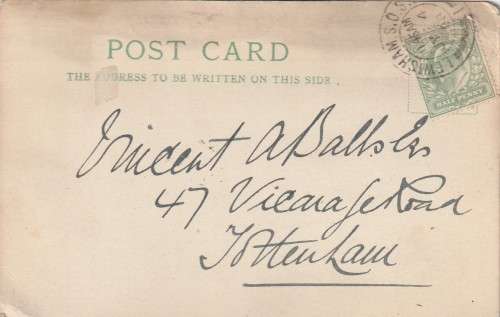 POST CARD
THE ADDRESS TO BE WRITTEN ON THIS SIDE.
LEWISHAM S.O. S.E.
HALF PENNY
Vincent A Balls Esq
47 Vicarage Road
Tottenham